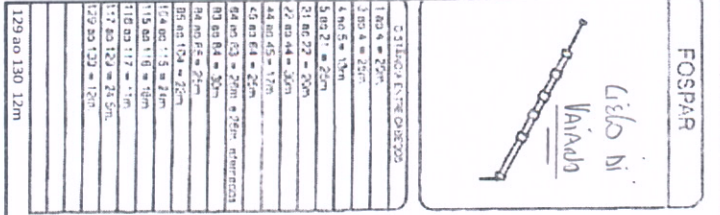 FOSPAR
CIELO DI
VAIANO
DISTÂNCIA ENTRE CABEÇOS
1 ao 4 = 25m
3 ao 4 = 25m
4 ao 5 = 13m
5 ao 21 = 25m
21 ao 22 = 20m
22 ao 44 = 30m
44 ao 45 = 17m
45 ao 64 = 25m
64 ao 83 = 20m e 25m
83 ao 84 = 30m
84 ao 85 = 25m
85 ao 104 = 22m
104 ao 115 = 24m
115 ao 116 = 18m
116 ao 117 = 11m
117 ao 129 = 21.5m
129 ao 130 = 12m
129 ao 130 12m